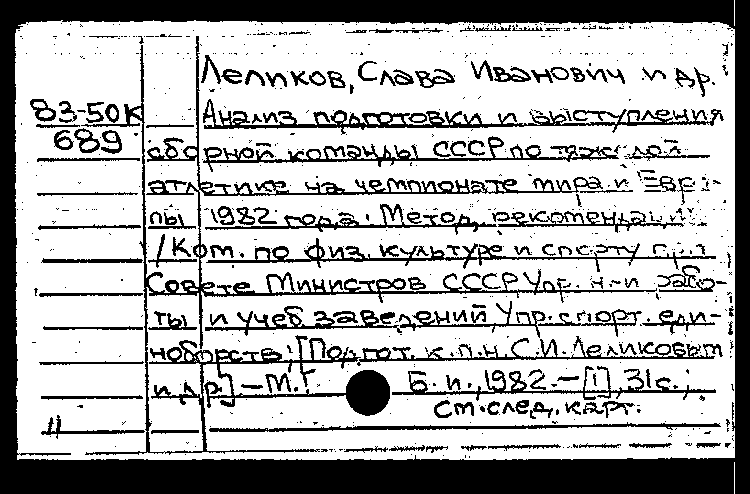 Леликов, Слава Иванович и др.
83-50К Анализ подготовки и выступления
689 сборной команды СССР по тяжелой
атлетике на чемпионате мира и Евро-
пы 1982 года. Метод. рекомендации
/Ком. по физ. культуре и спорту при
Совете Министров СССР, Упр. н.-и рабо-
ты и учеб заведений, Упр. спорт. еди-
ноборств; [Подгот. к.п.н. С.И. Леликовым
и др.] – М.: Б. и., 1982. – [1], 31с.;
см. след. карт.
11